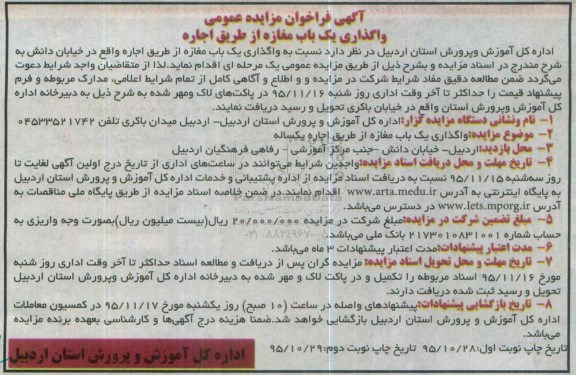 آگهی فراخوان مزایده عمومی
واگذاری یک باب مغازه از طریق اجاره
اداره کل آموزش وپرورش استان اردبیل در نظر دارد نسبت به واگذاری یک باب مغازه از طریق اجاره واقع در خیابان دانش به
شرح مندرج در اسناد مزایده و بشرح ذیل از طریق مزایده عمومی یک مرحله ای اقدام نماید.لذا از متقاضیان واجد شرایط دعوت
می‌گردد ضمن مطالعه دقیق مفاد شرایط شرکت در مزایده و و اطلاع و آگاهی کامل از تمام شرایط اعلامی، مدارک مربوطه و فرم
پیشنهاد قیمت را حداکثر تا آخر وقت اداری روز شنبه ۹۵/۱۱/۱۶ در پاکت‌های لاک ومهر شده به شرح ذیل به دبیرخانه اداره
کل آموزش وپرورش استان واقع در خیابان باکری تحویل و رسید دریافت نمایند.
۱- نام ونشانی دستگاه مزایده گزار:اداره کل آموزش و پرورش استان اردبیل- اردبیل میدان باکری تلفن ۰۴۵۳۳۵۲۱۷۴۲
۲- موضوع مزایده:واگذاری یک باب مغازه از طریق اجاره یکساله
۳- محل بازدید:اردبیل- خیابان دانش -جنب مرکز آموزشی - رفاهی فرهنگیان اردبیل
۴- تاریخ مهلت و محل دریافت اسناد مزایده:واجدین شرایط می‌توانند در ساعت‌های اداری از تاریخ درج اولین آگهی لغایت تا
روز سه‌شنبه ۹۵/۱۱/۱۵ نسبت به دریافت اسناد مزایده از اداره پشتیبانی و خدمات اداره کل آموزش و پرورش استان اردبیل
به پایگاه اینترنتی به آدرس www.arta.medu.ir اقدام نمایند.در ضمن خلاصه اسناد مزایده از طریق پایگاه ملی مناقصات به
آدرس www.lets.mporg.ir در دسترس می‌باشد.
۵- مبلغ تضمین شرکت در مزایده:مبلغ شرکت در مزایده ۲۰/۰۰۰/۰۰۰ ریال(بیست میلیون ریال)بصورت وجه واریزی به
حساب شماره ۲۱۷۳۰۱۰۸۳۱۰۰۱ بانک ملی می‌باشد.
۶- مدت اعتبار پیشنهادات:مدت اعتبار پیشنهادات ۳ ماه می‌باشد.
۷- تاریخ مهلت و محل تحویل اسناد مزایده: مزایده گران پس از دریافت و مطالعه اسناد حداکثر تا آخر وقت اداری روز شنبه
مورخ ۹۵/۱۱/۱۶ اسناد مربوطه را تکمیل و در پاکت لاک و مهر شده به دبیرخانه اداره کل آموزش وپرورش استان اردبیل
تحویل و رسید ثبت شده دریافت دارند.
۸- تاریخ بازگشایی پیشنهادات:پیشنهادهای واصله در ساعت (۱۰ صبح) روز یکشنبه مورخ ۹۵/۱۱/۱۷ در کمسیون معاملات
اداره کل آموزش و پرورش استان اردبیل بازگشایی خواهد شد.ضمنا هزینه درج آگهی‌ها و کارشناسی بعهده برنده مزایده
می‌باشد.
تاریخ چاپ نوبت اول:۹۵/۱۰/۲۸ تاریخ چاپ نوبت دوم:۹۵/۱۰/۲۹
اداره کل آموزش و پرورش استان اردبیل